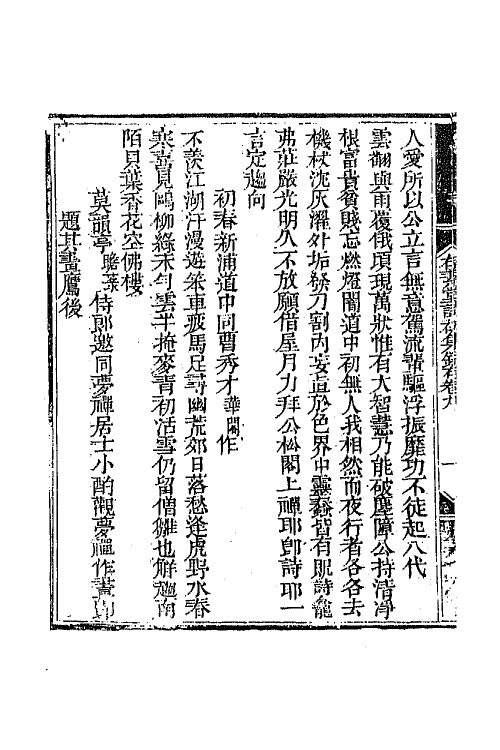 人愛所以公立言無意駕流輩驅浮振靡功不徒起八代
雲翻與雨覆俄頃現萬狀惟有大智慧乃能破塵障公持清淨
根富貴貧賤忘燃燈闇道中初無人我相然而夜行者各各去
機杖沈灰濯外垢發刀割內妄直於色界中靈蠢皆有貺詩龍
弗莊嚴光明久不放願借屋月力拜公松閣上禪耶郎詩耶一
言定趨向
初春新浦道中同曹秀才華閣作
不羨江湖汗漫遊笨車疲馬足尋幽荒郊日落愁逢虎野水春
寒喜見鷗柳綠未勻雲半掩麥青初活雪仍留僧雛也解趨南
陌貝葉香花空佛樓
莫韻亭瞻菉侍郎邀同夢禪居士小酌觀夢禪作畫
題其畫鷹後